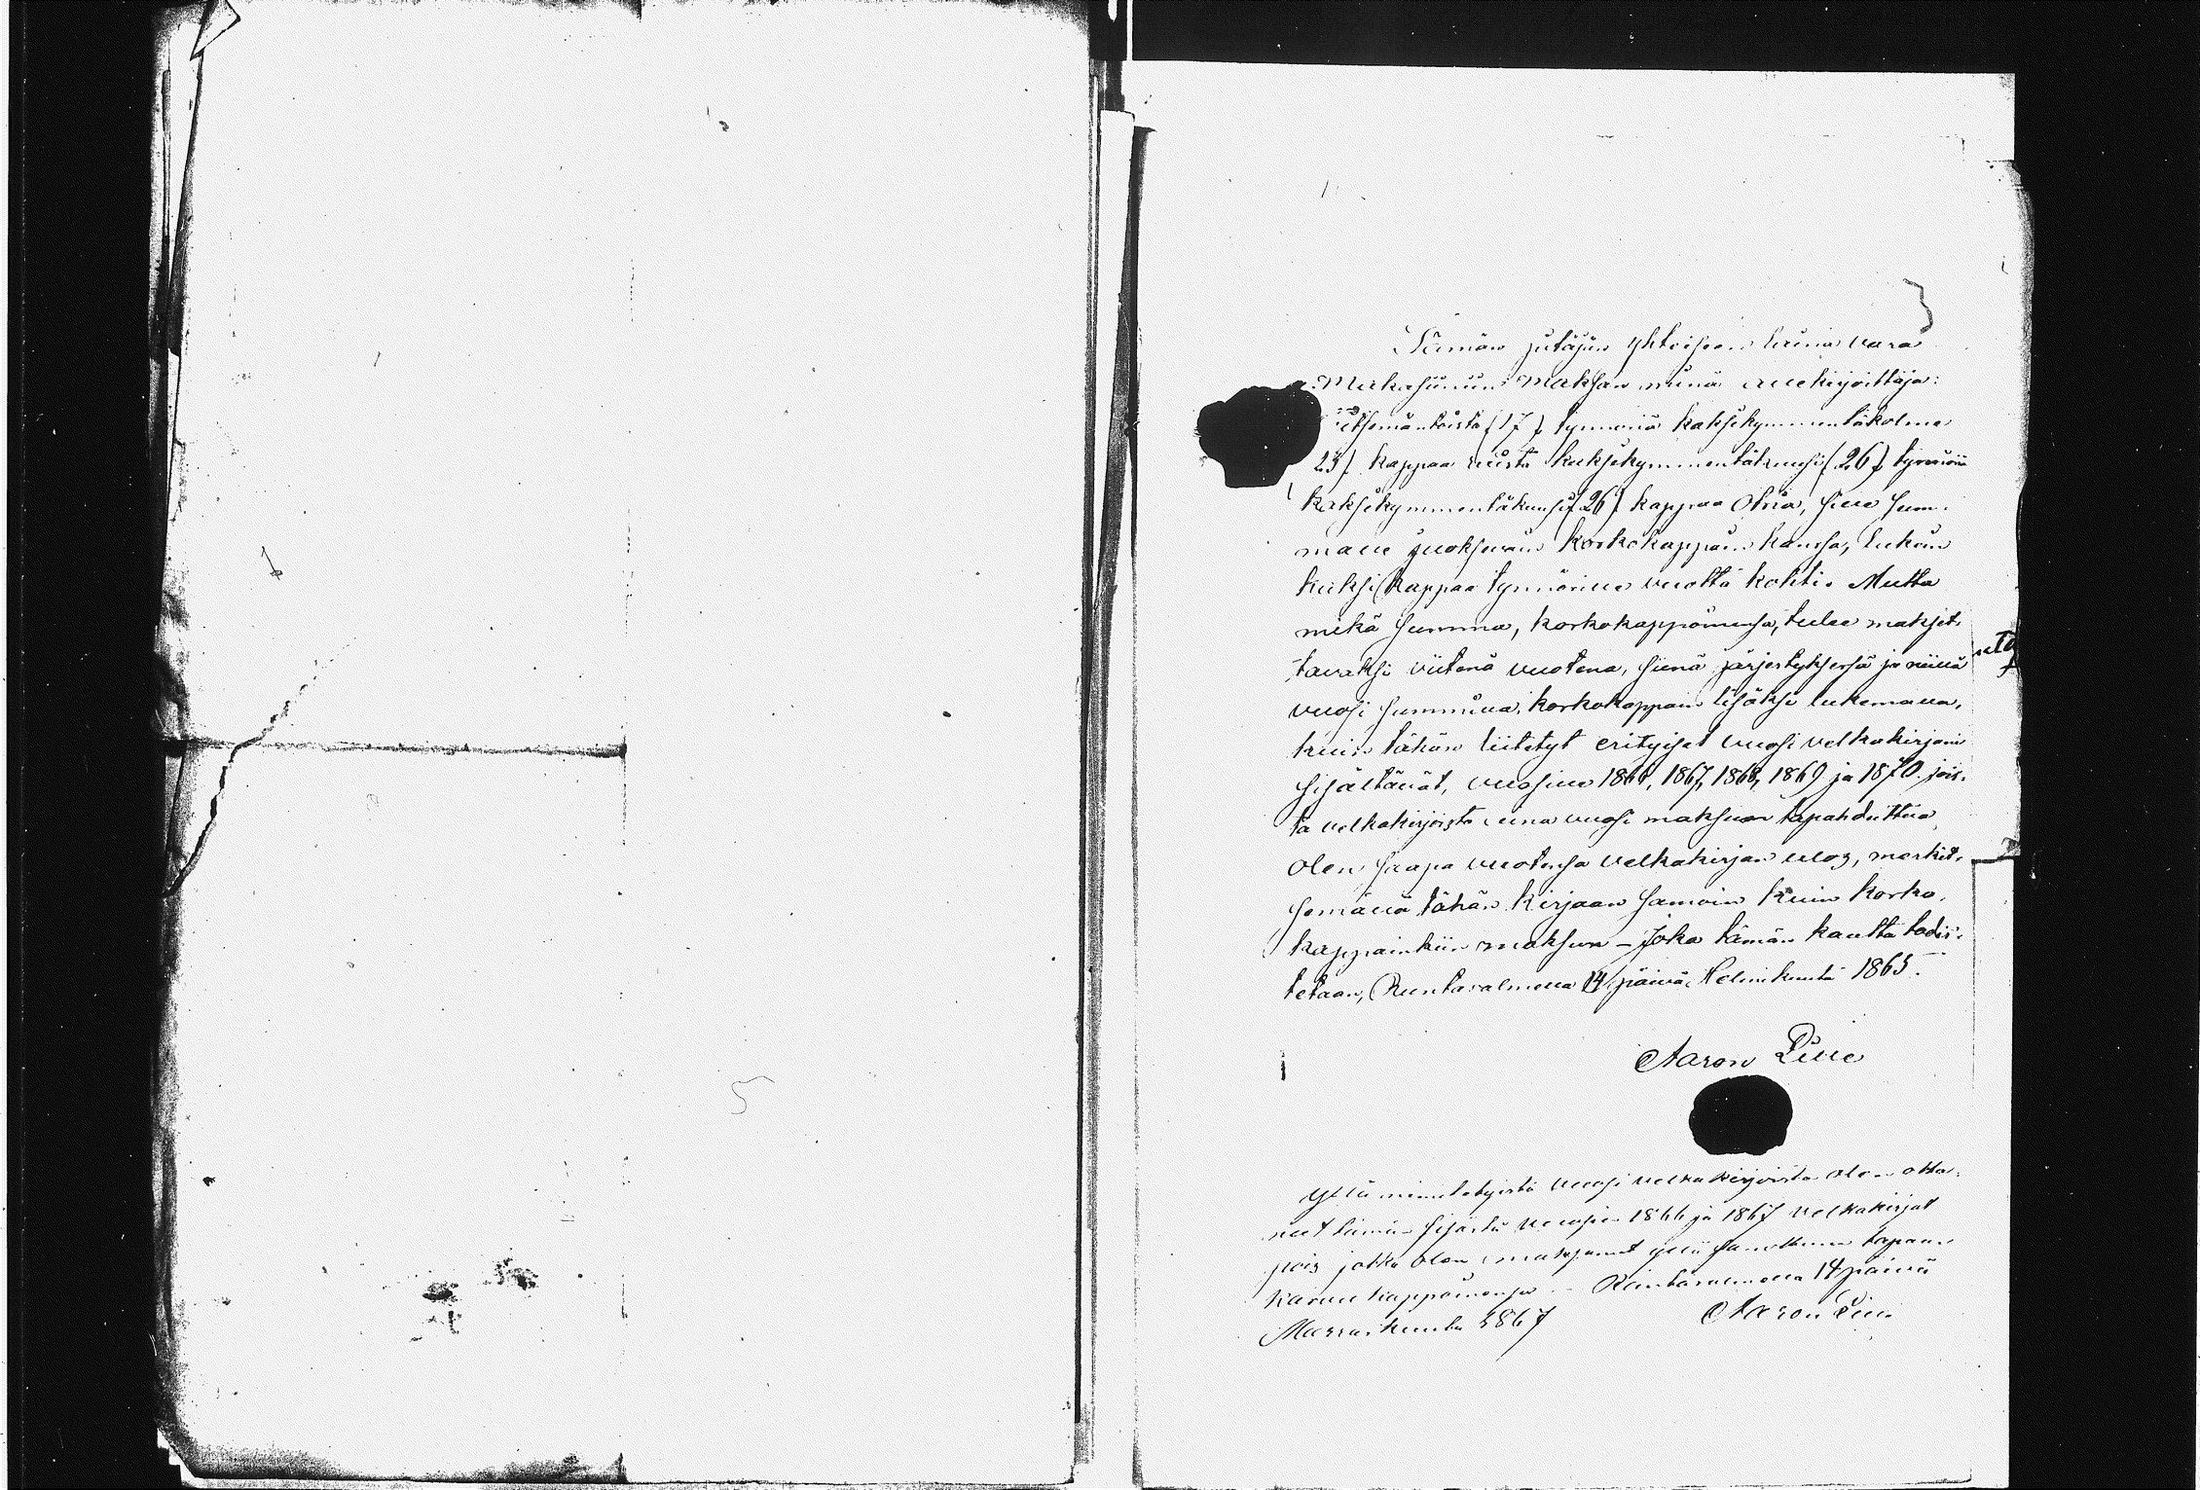 Tämän pitäjän yhteiseen laina vara
Makasiiniin Maksan minä allekirjoittaja:
Seitsemäntoista (17) tynnöriä kaksikymmentäkolme
23) kappaa ruista kaksikymmentäkuusi (26) tynnöriä
kaksikymmentäkuusi (26) kappaa Ohria, sille sum-
malle juoksevan korkokappain kanssa, lukein
kaksi kappaa tynnörille vuotta kohti. Mutta
mikä summa, korkokappoinensa, tulee makset-
tavaksi viitenä vuotena, siinä järjestyksessä ja niillä
vuosi summilla, korkokappain lisäksi lukemalla,
kuin tähän liitetyt erityiset vuosi velkakirjani
sisältävät, vuosille 1866, 1867, 1868, 1869 ja 1870. jois-
ta velkakirjoista aina vuosi maksun tapahduttua
olen saapa vuotensa velkakirjan ulos, merkit-
semällä tähän kirjaan samoin kuin korko-
kappainkiin maksun – Joka tämän kautta todis-
tetaan, Rantasalmella 14 päivä Helmikuuta 1865.
Aaron Pulle
5
Yllä nimitetyistä vuosi velkakirjoista olen otta-
nut tämän sisästä vuosien 1866 ja 1867 velkakirjat
pois jotka olen maksanut yllä sanottuun tapaan
kasvu kappoinensa – Rantasalmella 14 päivä
Marraskuuta 1867
Aaron